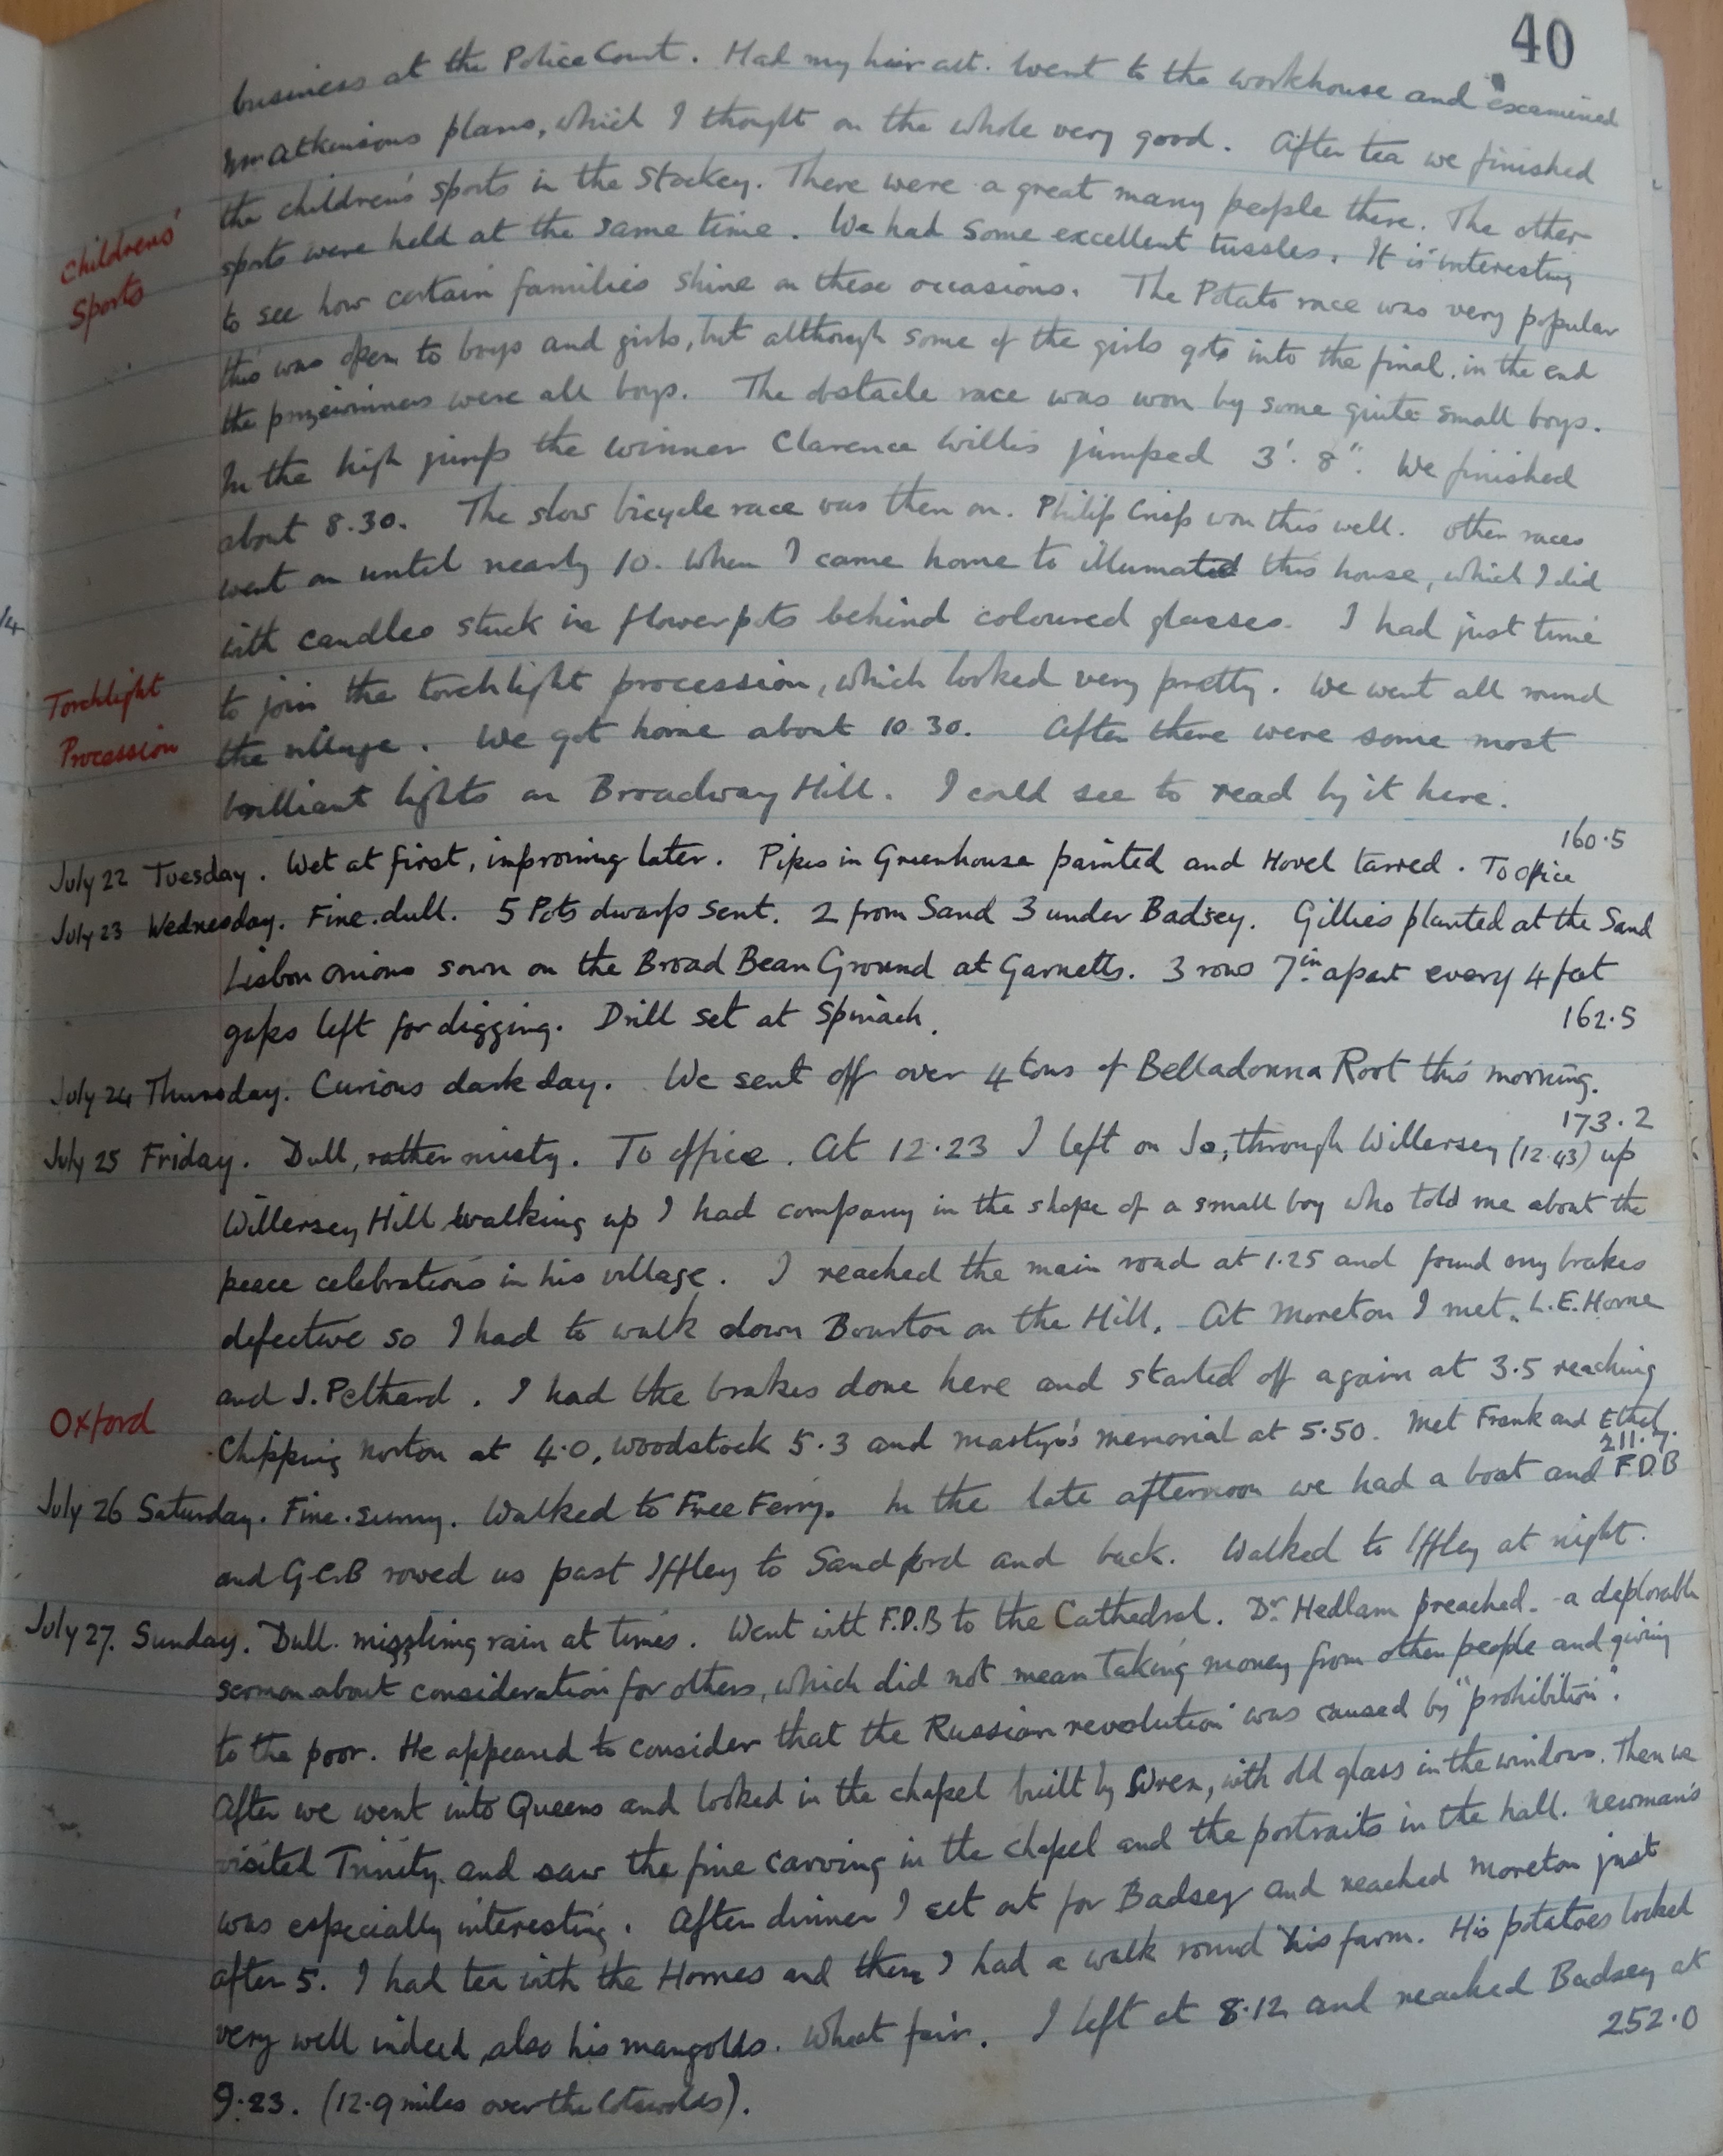 40
business at the Police Court. Had my hair cut. Went to the workhouse and examined
Mr Atkinsons plans, which I thought on the whole very good. After tea we finished
the children's sports in the Stockey. There were a great many people there. The other
Childrens'
sports were held at the same time. We had some excellent tussles. It is interesting
Sports
to see how certain families shine on these occasions. The Potato race was very popular
this was open to boys and girls, but although some of the girls got into the final, in the end
the prizewinners were all boys. The obstacle race was won by some quite small boys.
In the high jump the winner Clarence Willis jumped 3'. 8". We finished
about 8.30. The slow bicycle race was then on. Philip Crisp won this well. Other races
went on until nearly 10. When I came home to illumated this house, which I did
with candles stuck in flowerpots behind coloured glasses. I had just time
Torchlight
to join the torchlight procession, which looked very pretty. We went all round
Procession
the village. We got home about 10.30. After there were some most
brilliant lights on Broadway Hill. I could see to read by it here.
160.5
July 22 Tuesday. Wet at first, improving later. Pipes in Greenhouse painted and Hovel tarred. To office
July 23 Wednesday. Fine. dull. 5 Pots dwarfs sent. 2 from Sand 3 under Badsey. Gillies planted at the Sand
Lisbon onions sown on the Broad Bean Ground at Garnetts. 3 rows 7in apart every 4 feet
gaps left for digging. Drill set at Spinach.
162.5
July 24 Thursday. Curious dark day. We sent off over 4 tons of Belladonna Root this morning.
173.2
July 25 Friday. Dull, rather misty. To office. At 12.23 I left on Jo, through Willersey (12.43) up
Willersey Hill walking up I had company in the shape of a small boy who told me about the
peace celebrations in his village. I reached the main road at 1.25 and found my brakes
defective so I had to walk down Bourton on the Hill. At Moreton I met L.E. Horne
and J. Pethard. I had the brakes done here and started off again at 3.5 reaching
Oxford
Chipping Norton at 4.0, Woodstock 5.3 and Martyr's Memorial at 5.50. Met Frank and Ethel.
211.7.
July 26 Saturday. Fine. sunny. Walked to Free Ferry. In the late afternoon we had a boat and F.D.B
and G.C.B rowed us past Iffley to Sandford and back. Walked to Iffley at night.
July 27. Sunday. Dull. mizzling rain at times. Went with F.D.B to the Cathedral. Dr. Hedlam preached - a deplorable
sermon about consideration for others, which did not mean taking money from other people and giving
to the poor. He appeared to consider that the Russian revolution was caused by "prohibition".
After we went into Queens and looked in the chapel built by Wren, with old glass in the windows. Then we
visited Trinity and saw the fine carving in the chapel and the portraits in the hall. Newman's
was especially interesting. After dinner I set out for Badsey and reached Moreton just
after 5. I had tea with the Hornes and then I had a walk round his farm. His potatoes looked
very well indeed, also his mangolds. Wheat fair. I left at 8.12 and reached Badsey at
252.0
9.23. (12.9 miles over the Cotswolds).